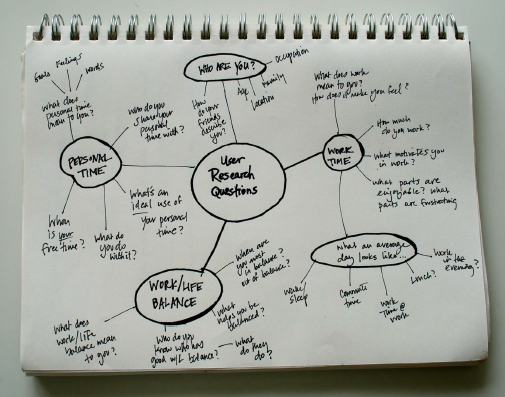 WHO ARE YOU?
occupation
Family
Age
location
How
do your
friends
describe
you?
User
Research
Questions
Goals
Feelings
words
What does
personal time
mean to you?
Who do you
share your
personal
time with?
PERSONAL
TIME
What's an
ideal use of
your personal
time?
When
is your
free time?
What do
you do
with it?
What does work
mean to you?
How does it make you feel?
WORK
TIME
How much
do you work?
What motivates you
in work?
What parts are
enjoyable? what
parts are frustrating
what an average
day looks like...
wake/
sleep
Commute
time
work
Time @
work
Lunch?
Work
in the
evening?
WORK/LIFE
BALANCE
When are
you most
in balance?
out of balance?
What
helps you be
balanced?
What does
work/life
balance mean
to you?
Who do you
know who has
good w/L balance?
What
do they
do?